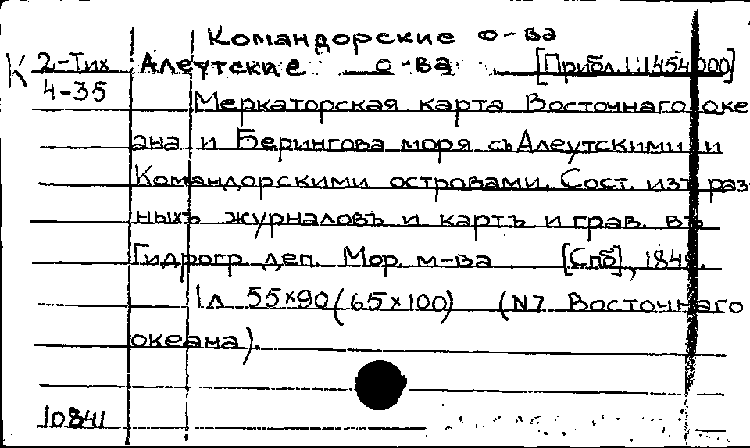 Командорские о-ва
К 2-Тих Алеутские о-ва [Прибл. 1:1454000]
4-35
Меркаторская карта Восточнаго оке
ана и Берингова моря съ Алеутскими и
Командорскими островами. Сост. изъ раз
ныхъ журналовъ и картъ и грав. въ
Гидрогр. деп. Мор. м-ва [Спб],
1 л 55×90 (65×100) (N7 Восточнаго
океана).
10841